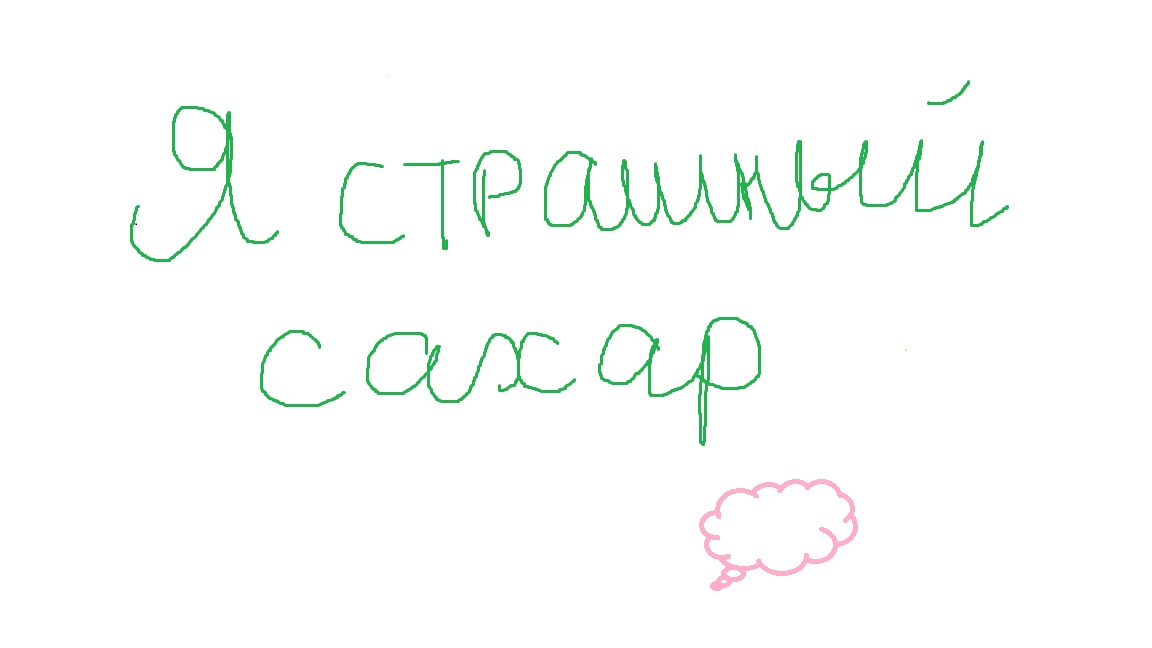 Я страшный
сахар